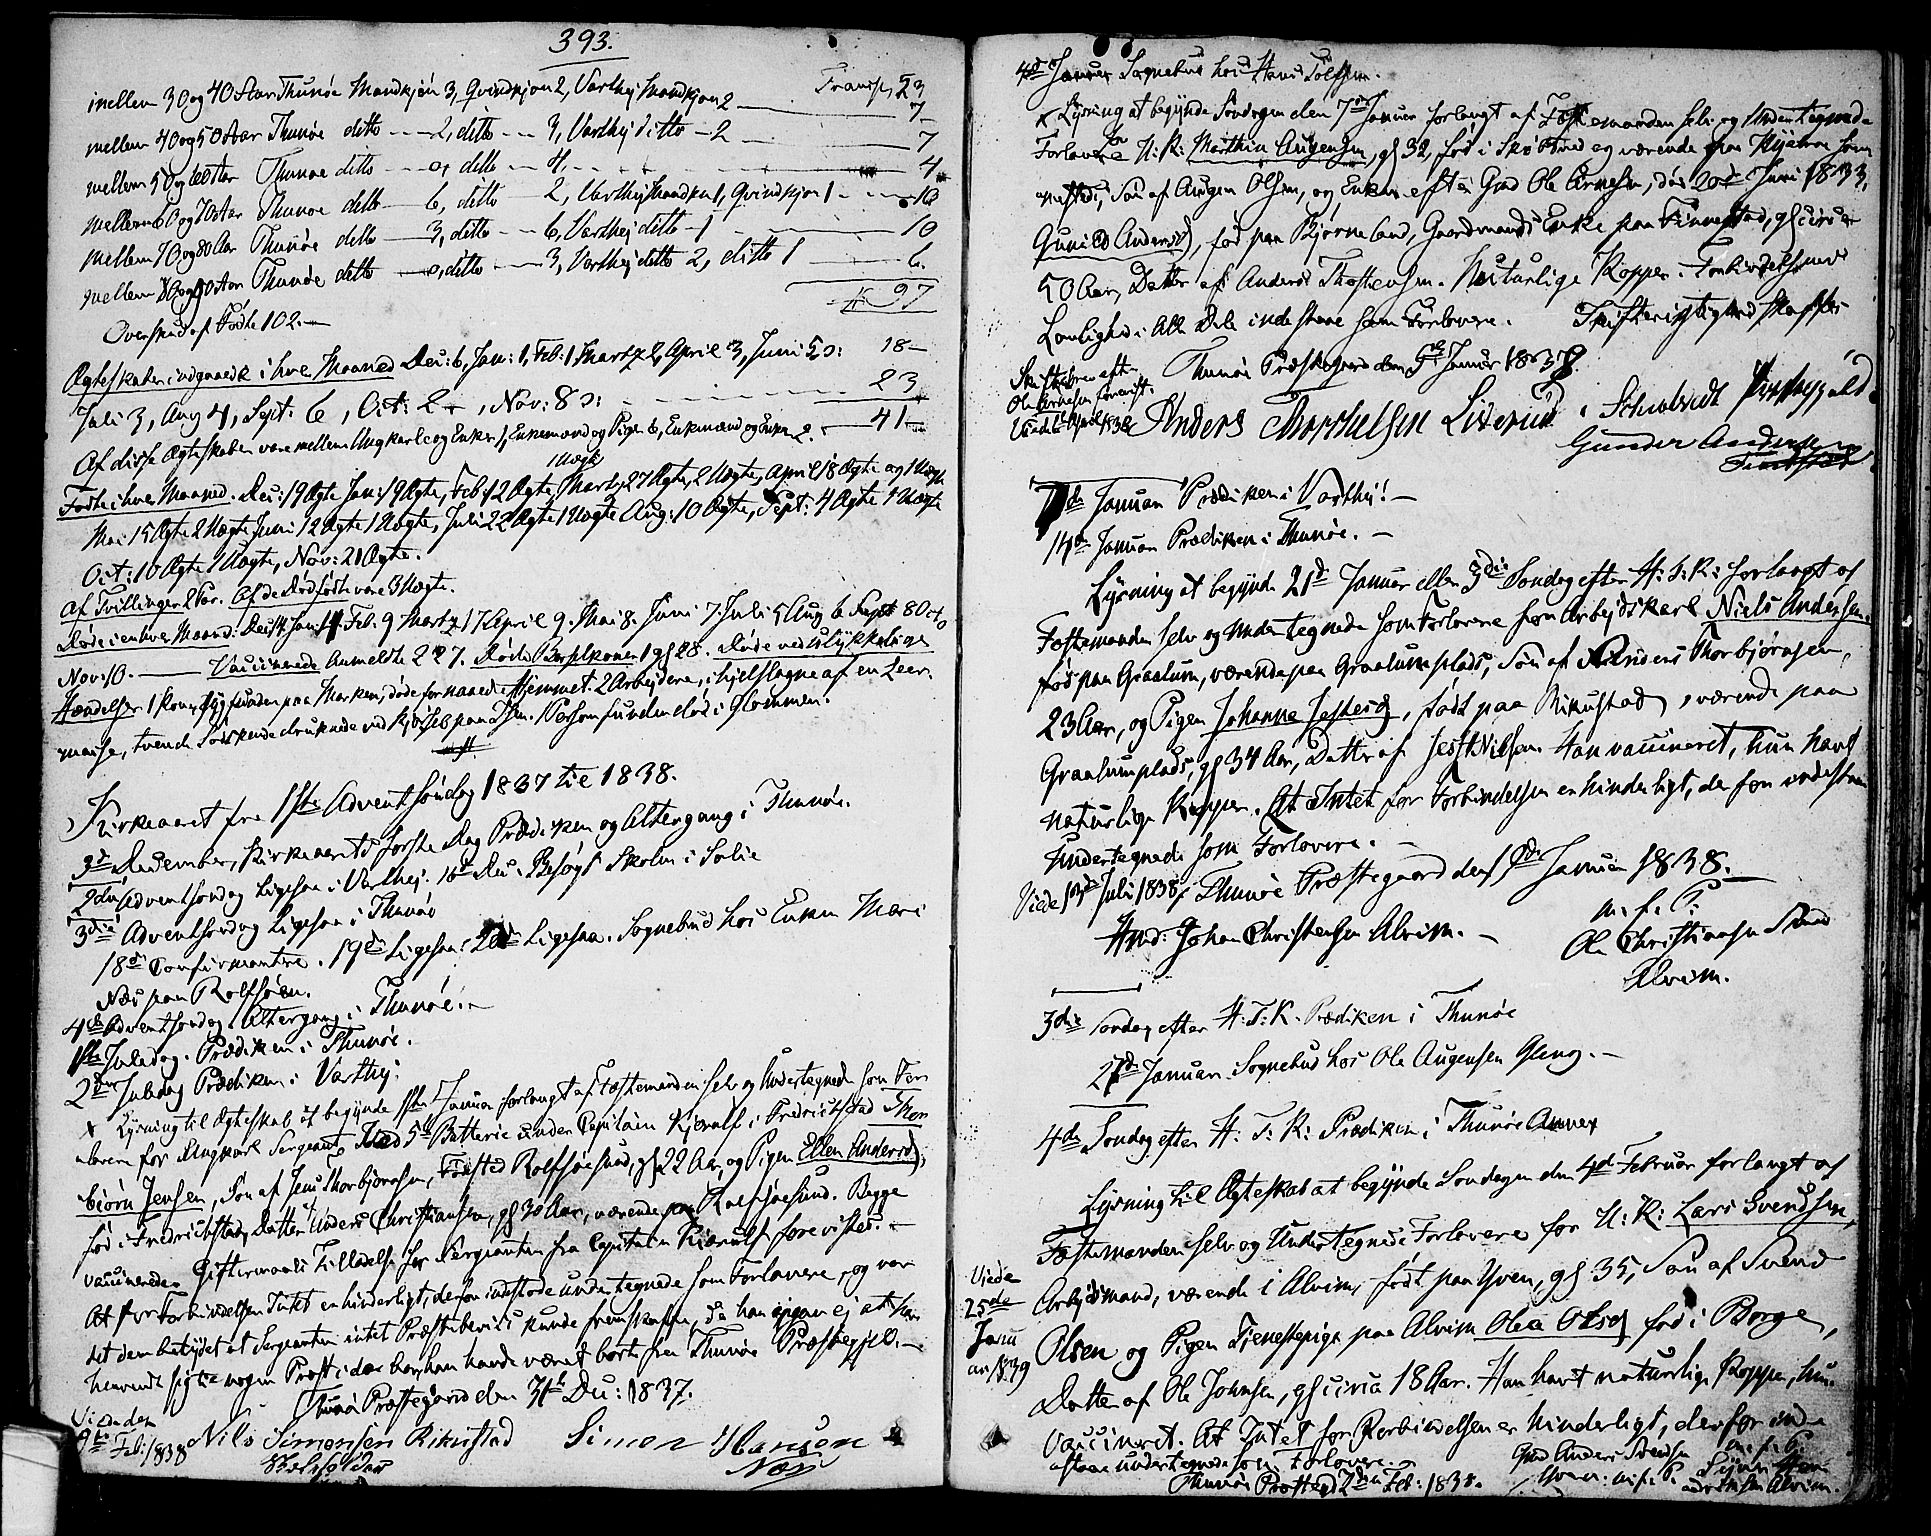 393.
Transp. 53
mellem 30 og 40 Aar Thunøe Mandkjøn 3, Qvindkjøn 2, Varthej Mandkjøn 2 — 7
mellem 40 og 50 Aar Thunøe ditto — 2, ditto — 3, Varthej ditto — 2 7
mellem 50 og 60 Aar Thunøe ditto — 0, ditto — 4, 4
mellem 60 og 70 Aar Thunøe ditto — 6, ditto — 2, Varthej Mandkn 1, Qvindkjøn 1 10
mellem 70 og 80 Aar Thunøe ditto — 3, ditto — 6, Varthej ditto — 1 10
mellem 80 og 90 Aar Thunøe ditto — 0, ditto — 3, Varthej ditto 2, ditto 1 6.
97
Overskud af Fødte 102. —
Ægteskaber indgaaede i hver Maaned Dec: 6, Jan: 1, Feb: 1 Martz 2, April 3, Juni 5 18 —
Juli 3, Aug 4, Sept: 6, Oct: 2, Nov: 8 23
41 —
Af disse Ægteskaber vare mellem Ungkarle og Enker 1, Enkemænd og Piger 6, Enkemænd og Enker 2.
1 Uægte
Fødte i hver Maaned. Dec: 19 Ægte Jan: 19 Ægte, Feb: 12 Ægte, Martz 27 Ægte, 2 Uægte, April 18 Ægte og 1 Uægte
Mai 15 Ægte 2 Uægte Juni 12 Ægte 1 Uægte, Juli 22 Ægte 1 Uægte Aug: 10 Ægte, Sept: 4 Ægte 1 Uægte
Oct: 10 Ægte 1 Uægte, Nov: 21 Ægte.
Af Tvillinger 2 Par. Af de Dødfødte vare 3 Uægte.
Døde i enhver Maaned: Dec: 14 Jan: 14 Feb: 9 Martz 17 April 9. Mai 8. Juni 7. Juli 5 Aug 6 Sept 8 Oct
Nov: 10. — Vaccinerede Anmeldte 227. Døde Barselkoner 1 gl 28. Døde ved ulykkelige
Hændelser 1 Kone, funden paa Marken, døde før naaede Hjemmet. 2 Arbeidere, ihjelslagne af en Leer-
masse, tvende Sødskende druknede ved paa Isen. 1 Person funden død i Glommen.
Kirkeaaret fra 1ste Advent Søndag 1837 til 1838.
3d December, Kirkeaarets første Dag Prædiken og Altergang i Thunøe.
2den Advent Søndag Ligesaa i Varthej. 16de Dec: Besøgt Skolen i Solie
3die Advent Søndag Ligesaa i Thunøe
18de Confirmanterne. 19de Ligesaa. 20de Ligesaa. Sognebud hos Enken Mari
Næs paa Rolfsøen.
4de Advent Søndag Altergang i Thunøe. —
1ste Juledag. Prædiken i Thunøe.
2den Juledag Prædiken i Varthej.
x Lysning til Ægteskab at begynde 1ste Januar forlangt af Fæstemanden selv og Undertegnede som For-
lovere for Ungkarl Sergeant ved 5te Batterie under Capitain Kjerulf i Fredrichstad Thor
bjørn Jensen, Søn af Jens Thorbjørnsen, Fæsted Rolfsøesund, gl 22 Aar, og Pigen Ellen Andersd.,
fød i Fredrichstad, Datter Anders Christiansen, gl 30 Aar, værende paa Rolfsøesund. Begge
vaccinerede. Giftermaals Tilladelse for Sergeanten fra Capitain Kierulf forevistes. —
At for Forbindelsen Intet er hinderligt, derfor indestode undertegnede som Forlovere, og var
det dem betydet at Sergeanten intet Præstebeviis kunde fremskaffe, da han ej at have
henvendt sig til nogen Præst i den han havde været borte fra Thunøe Præstegjeld. —
Thunøe Præstegaard den 31te Dec: 1837.
Viede den
9de Feb: 1838 Nils Simensen Rikustad Simen Hansen
Næs
4de Januar Sognebud hos Hans Tolfsen.
x Lysning at begynde Søndagen den 7de Januar forlangt af Fæstemanden selv og Undertegnede
Forlovere U: K: Martin Augensen, gl 32, fød i Skjøtsred og værende paa som
, Søn af Augen Olsen, og Enken efter Gmd Ole Arnesen, død 20de Juni 1833,
Gunild Andersd, fød paa Bjørneland, Gaardmands Enke paa Finnestad, gl circa
50 Aar, Datter af Anders Thostensen. Naturlige Kopper. Forbindelsens
Lovlighed i Alle Dele indestaae som Forlovere. Skifterigtighed skaffes
Thunøe Præstegaard den 5te Januar 1838.
Skiftebrev efter
Ole Arnesen forevist.
Viede April 1838 Anders Thorkelsen Liverud. Schulstedt
Gunder Andersen
7de Januar Prædiken i Varthej! —
14de Januar Prædiken i Thunøe. —
Lysning at begynde 21de Januar eller 3die Søndag efter H: 3: K: forlangt af
Fæstemanden selv og Undertegnede som Forlovere for Arbejdskarl Niels Andersen,
fød paa Graalum, værende paa Graalumplads, Søn af Anders Thorbjørnsen,
23 Aar, og Pigen Johanne Jepsesd, født paa Rikustad, værende paa
Graalumplads, gl 34 Aar, Datter af Jeppe Nilsen Han vaccineret, hun havt
naturlige Kopper. At Intet for Forbindelsen er hinderligt, derfor indestaae
undertegnede som Forlovere. —
Viede 13de Juli 1838. Thunøe Præstegaard den Januar 1838. —
Hmd: Johan Christensen Alvim. —
m. f. P.
Ole Christiansen
Alvim.
3die Søndag efter H: 3: K. Prædiken i Thunøe
27de Januar. Sognebud hos Ole Augensen Gleng. —
4de Søndag efter H: 3: K: Prædiken i Thunøe Annex
Lysning til Ægteskab at begynde Søndagen den 4de Februar forlangt af
Fæstemanden selv og Undertegnede Forlovere for U: K: Lars Svendsen,
Viede
25de
Janu
ar 1839
Arbejdsmand, værende i Alvim, født paa Yven, gl 35, Søn af Svend
Olsen og Pigen Tienestepige paa Alvim Olea Olsd fød i Borge,
Datter af Ole Johnsen, gl circa 18 Aar. Han havt naturlige Kopper, hun
Vaccineret. At Intet for Forbindelsen er hinderligt, derfor inde-
staae undertegnede som Forlovere. —
Thunøe Præstegd 2den Feb: 1838.
Gmd Anders Svendsen
Yven. m. f. P.
m. f. P.
Alvim.